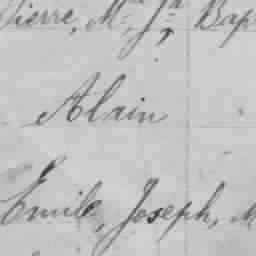 Pierre, Mie Jn Bap
Alain
Emile, Joseph, M